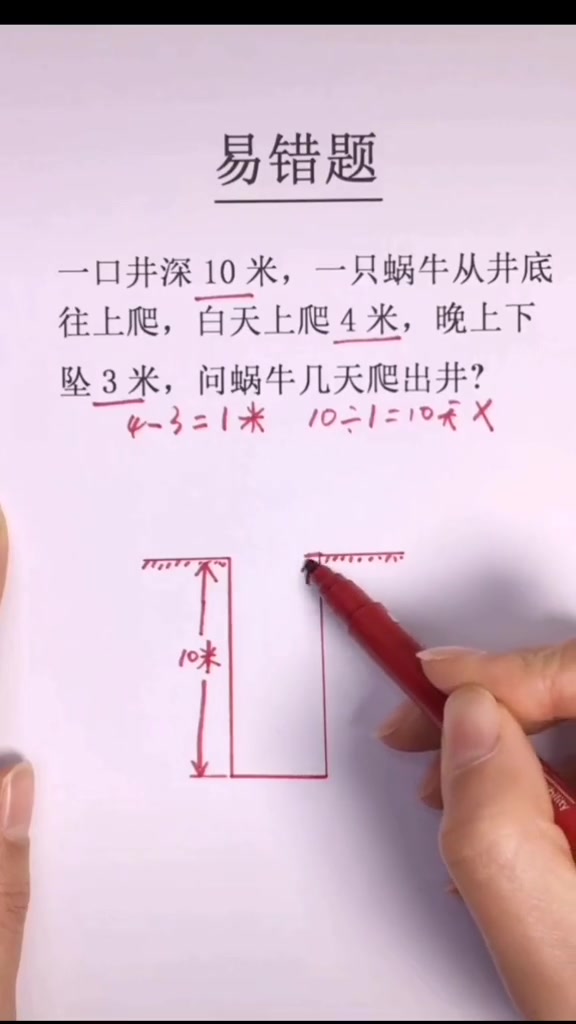 易错题
一口井深 10 米，一只蜗牛从井底
往上爬，白天上爬 4 米，晚上下
坠 3 米，问蜗牛几天爬出井？
4-3=1米 10÷1=10天 X
10米